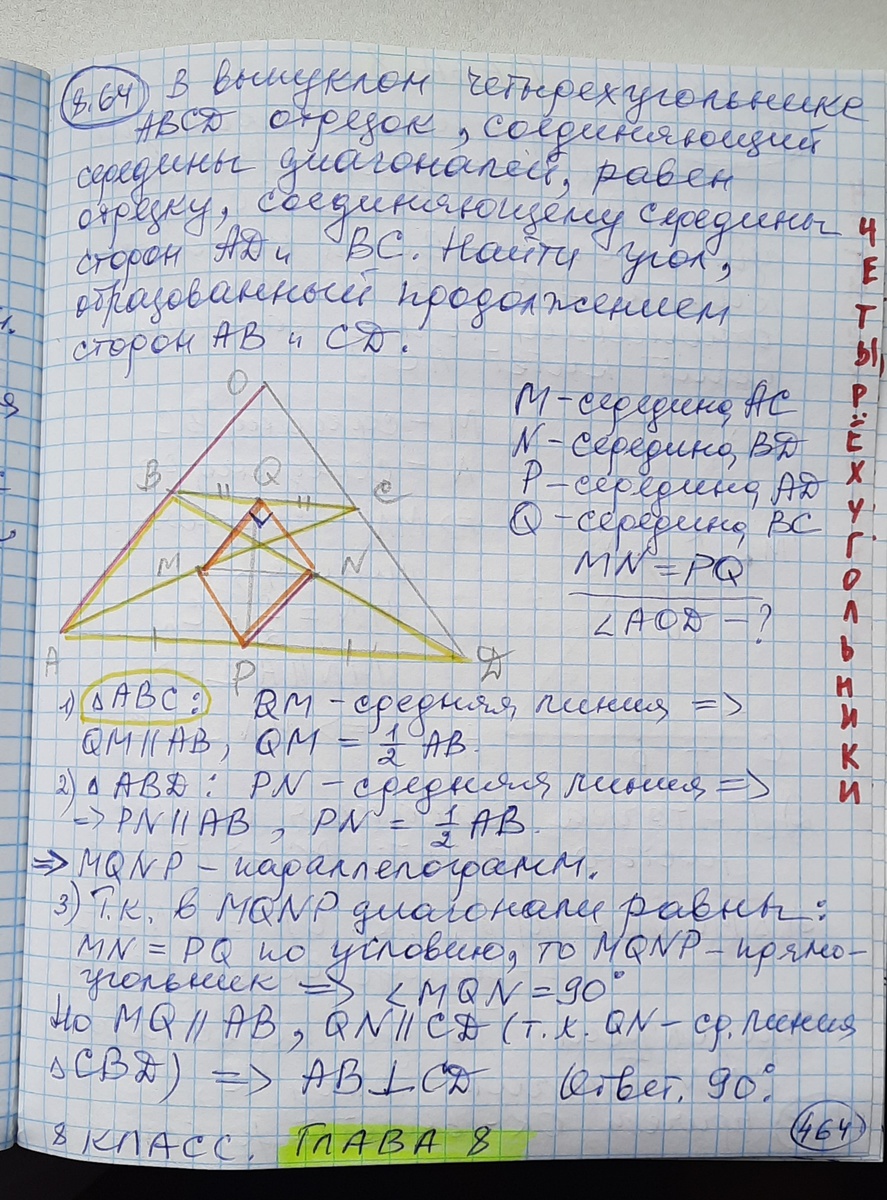 8.64 В выпуклом четырехугольнике
ABCD отрезок, соединяющий
середины диагоналей, равен
отрезку, соединяющему середины
сторон AD и BC. Найти угол,
образованный продолжением
сторон AB и CD.
O
B
Q
C
M
N
A
P
D
M – середина AC
N – середина BD
P – середина AD
Q – середина BC
MN = PQ
∠AOD – ?
1) △ABC: QM – средняя линия =>
QM || AB, QM = 1/2 AB.
2) △ABD: PN – средняя линия =>
=> PN || AB, PN = 1/2 AB.
=> MQNP – параллелограмм.
3) Т.к. в MQNP диагонали равны:
MN = PQ по условию, то MQNP – прямо-
угольник => ∠MQN = 90°
Но MQ || AB, QN || CD (т.к. QN – ср. линия
△CBD) => AB ⊥ CD Ответ. 90°.
8 КЛАСС. ГЛАВА 8
464
ЧЕТЫРЁХУГОЛЬНИКИ